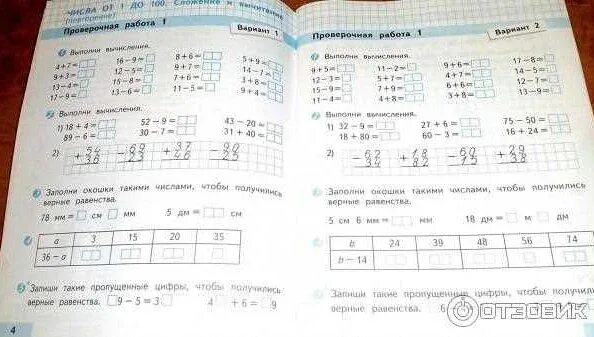 ЧИСЛА ОТ 1 ДО 100. Сложение и вычитание
(повторение)
Проверочная работа 1
Вариант 1
1 Выполни вычисления.
4+7= 16−9= 8+6= 5+9=
9+3= 12−5= 9+7= 14−7=
13−4= 15−8= 7+6= 3+8=
17−9= 13−6= 11−5= 9+4=
2 Выполни вычисления.
1) 18+4= 52−9= 43−20=
89−6= 30−7= 31+40=
2) +54 −69 +37 −90
36 23 46 25
3 Заполни окошки такими числами, чтобы получились
верные равенства.
78 мм = см мм 5 дм = см
4 a 3 15 20 35
36−a
5 Запиши такие пропущенные цифры, чтобы получились
верные равенства. 9−5=3 4 +6= 9
4
Проверочная работа 1
Вариант 2
1 Выполни вычисления.
9+5= 11−2= 9+6= 17−8=
12−3= 5+7= 7+4= 14−5=
15−9= 9+4= 6+8= 12−8=
11−4= 4+8= 3+8= 13−9=
2 Выполни вычисления.
1) 32−9= 27+6= 75−50=
18+80= 60−3= 16+24=
2) −62 +18 −60 +29
34 82 15 38
3 Заполни окошки такими числами, чтобы получились
верные равенства.
5 см 6 мм = мм 18 дм = м дм
b 24 39 48 56 74
b−14
Запиши такие пропущенные цифры, чтобы получились
верные равенства. 6
ОТЗОВИК